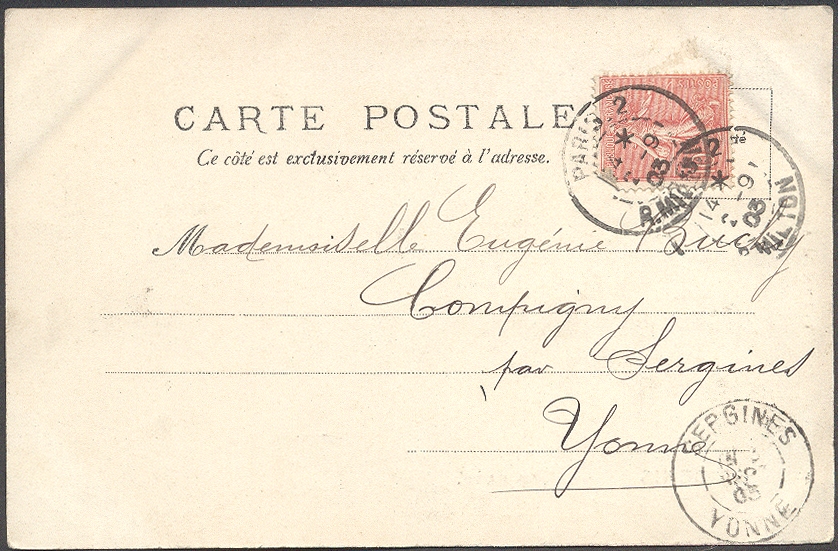 CARTE POSTALE
Ce côté est exclusivement réservé à l'adresse.
PARIS
R. MILTON
2
14
-9
03
2
14
-9
03
MILTON
Mademoiselle Eugénie
Compigny
par Sergines
Yonne
SERGINES
03
YONNE